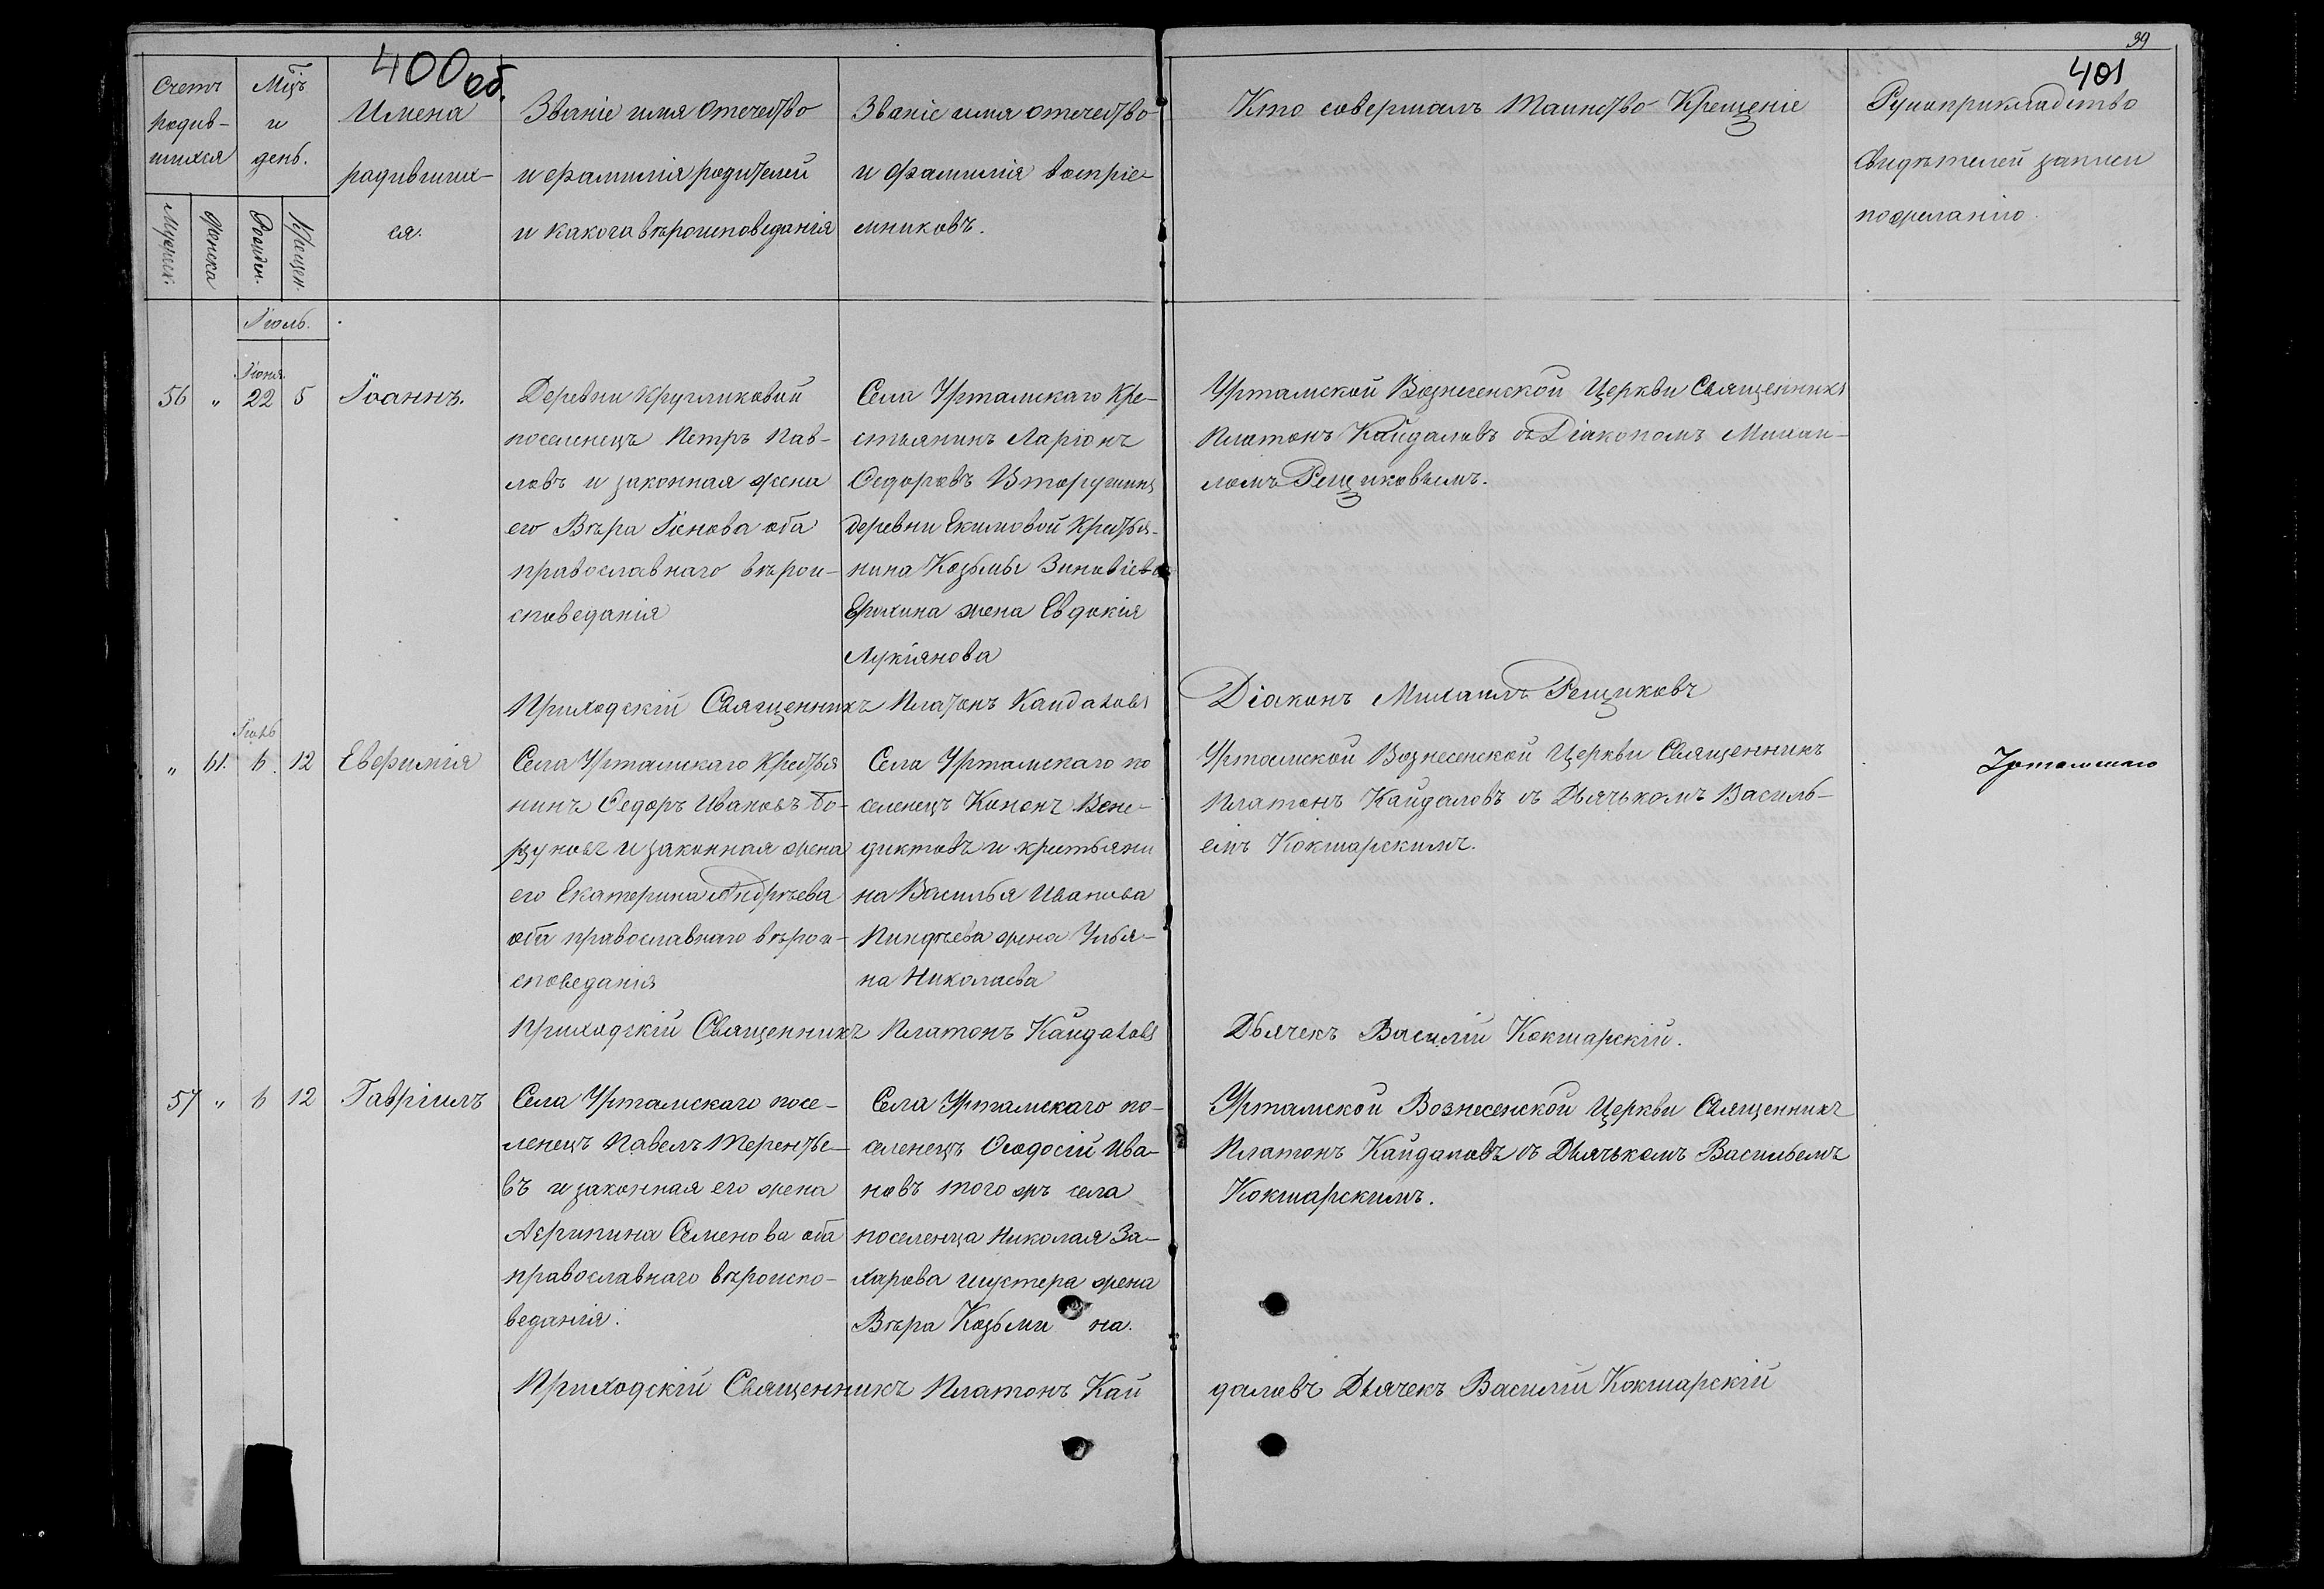 400 об.
39
401
Счетъ
Родив-
шихся
Мужеск.
Женска
Мцъ
и
день.
Рожден.
Крещен.
Имена
родивших-
ся.
Званіе имя отечество
и фамилія родителей
и какога вѣроисповеданія
Званіе имя отечество
и фамилія воспріе-
мниковъ.
Кто совершалъ Таинство Крещеніе
Рукоприкладство
Свидѣтелей записи
пожеланію.
Іюль.
Іюня
56 " 22 5
Іоаннъ.
Деревни Кругликовой
поселенецъ Петръ Пав-
ловъ и законная жена
его Вѣра Іонова оба
православнаго вѣрои-
споведанія
Села Уртамскаго Кре-
стьянинъ Ларіонъ
Федоровъ Вторушинъ
деревни Екимовой Крестья-
нина Козьмы Зиновіева
Ерохина жена Евдокія
Лукіянова
Уртамской Вознесенской Церкви Священникъ
Платонъ Кайдаловъ съ Діакономъ Михаи-
ломъ Рещиковымъ.
Приходскій Священникъ Платонъ Кайдаловъ
Діаконъ Михаилъ Рещиковъ
Іюль
" 61. 6. 12
Евфимія
Села Уртамскаго Крестья
нинъ Федоръ Ивановъ Бо-
рзуновъ и законная жена
его Екатерина Андреева
оба православнаго вѣрои-
споведанія
Села Уртамскаго по
селенецъ Кононъ Вене-
диктовъ и крестьяни
на Василья Иванова
Пиндѣева жена Улья-
на Николаева
Уртамской Вознесенской Церкви Священникъ
Платонъ Кайдаловъ съ Дьячькомъ Василь-
емъ Кокшарскимъ.
Уртамскаго
Приходскій Священникъ Платонъ Кайдаловъ
Дьячекъ Василій Кокшарскій.
57 " 6 12
Гавріилъ
Села Уртамскаго посе-
ленецъ Павелъ Терентье-
въ и законная его жена
Агрипина Семенова оба
православнаго вѣроиспо-
веданія.
Села Уртамскаго по-
селенецъ Феодосій Ива-
новъ того жъ села
поселенца Николая За-
харова Шустера жена
Вѣра Козьмина.
Уртамской Вознесенской Церкви Священникъ
Платонъ Кайдаловъ съ Дьячькомъ Васильемъ
Кокшарскимъ.
Приходскій Священникъ Платонъ Кай
даловъ Дьячекъ Василій Кокшарскій